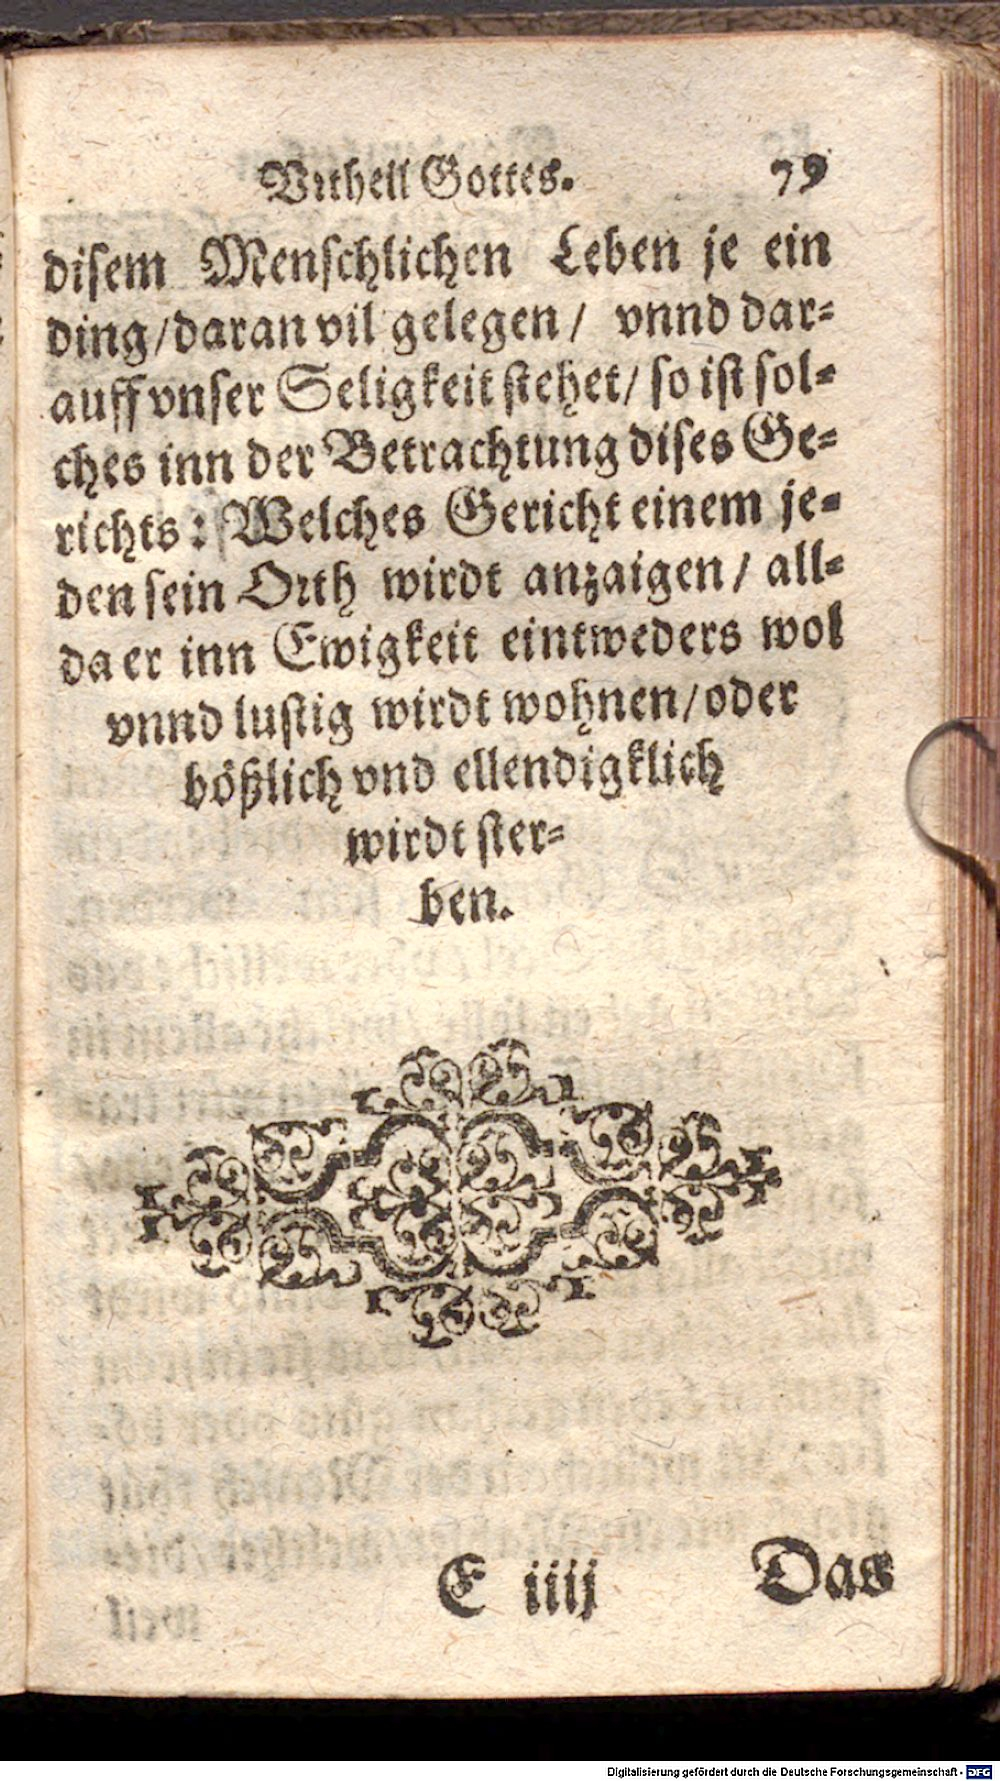 Vrtheil Gottes. 79
disem Menschlichen Leben je ein
ding/daran vil gelegen/ vnnd dar-
auff vnser Seligkeit stehet/ so ist sol-
ches inn der Betrachtung dises Ge-
richts: Welches Gericht einem je-
den sein Orth wirdt anzaigen/ all-
da er inn Ewigkeit eintweders wol
vnnd lustig wirdt wohnen/oder
bößlich vnd ellendigklich
wirdt ster-
ben.
E iiij Das
Digitalisierung gefördert durch die Deutsche Forschungsgemeinschaft - DFG